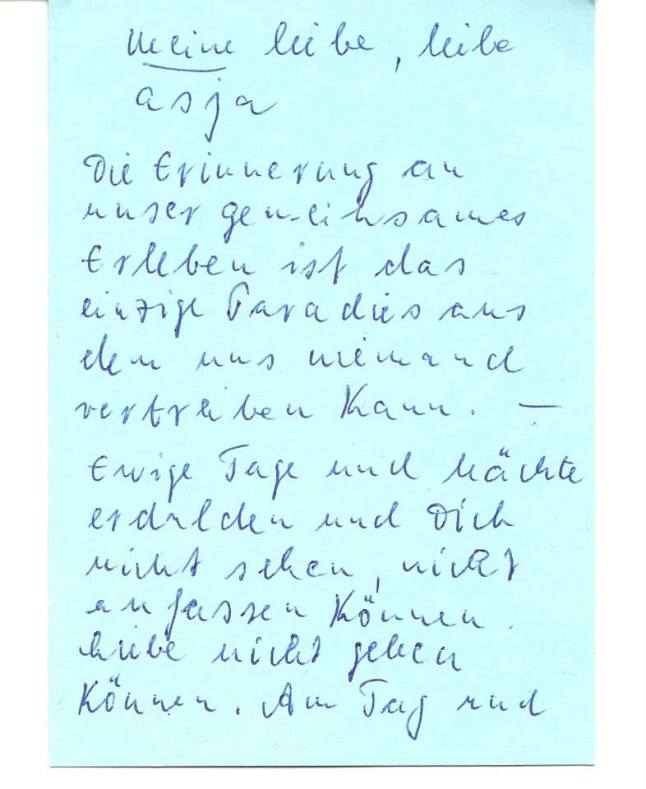 Meine liebe, liebe
Asja
Die Erinnerung an
unser gemeinsames
Erleben ist das
einzige Paradies aus
dem uns niemand
vertreiben kann. —
Ewige Tage und Nächte
erdulden und Dich
nicht sehen, nicht
anfassen können.
Liebe nicht geben
können. Am Tag und